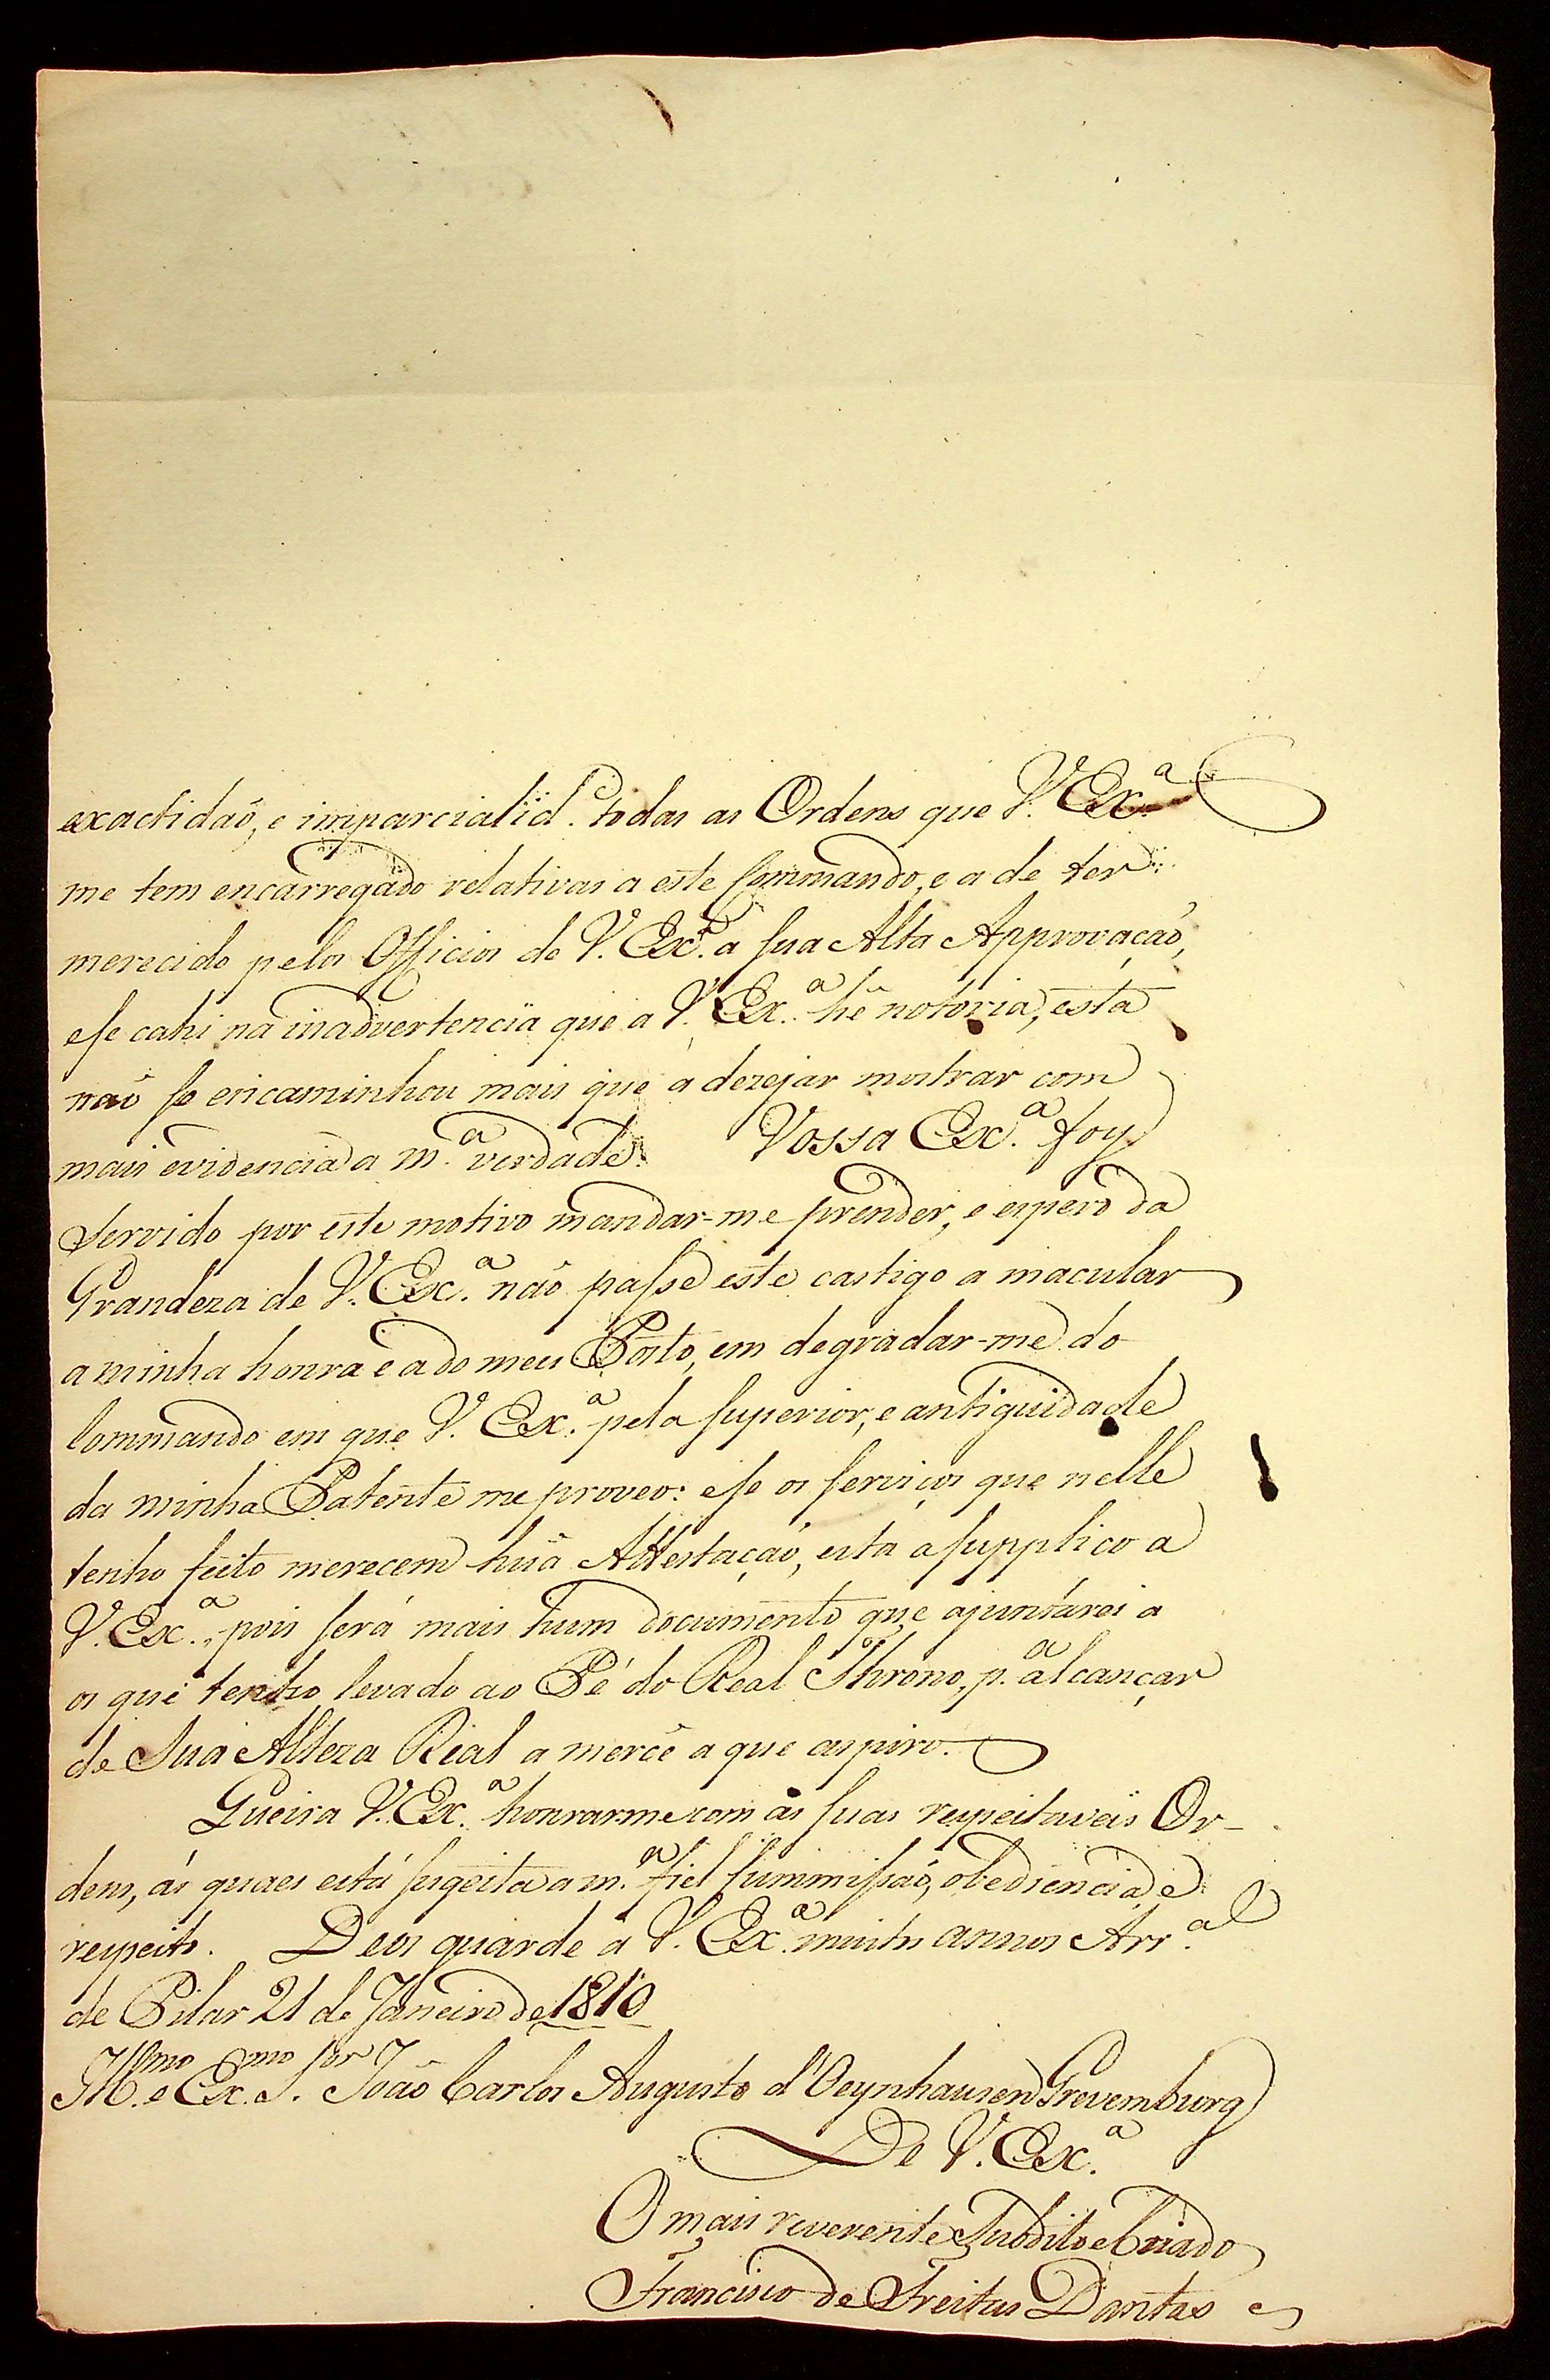 exactidaõ, e imparcialid.e todas as Ordens que V. Ex.a
me tem encarregado relativas a este Commando, e a de ter
merecido pelos Officios de V. Ex.a a sua Alta Approvaçaõ,
e se cahi na inadvertencia que a V. Ex.a hé notoria, esta
naõ se encaminhou mais que a dezejar mostrar com
mais evidencia a m.a verdade. Vossa Ex.a foy
servido por este motivo mandar-me prender, e espero da
Grandeza de V. Ex.a naõ passe este castigo a macular
a minha honra e a do meu Posto, em degradar-me do
Commando em que V. Ex.a pela superior, e antiguidade
da minha Patente me proveo: e se os serviços que nelle
tenho feito merecem huã Attestaçaõ, esta a supplico a
V. Ex.a, pois será mais hum documento que ajuntarei a
os que tenho levado ao Pé do Real Throno, p.a alcançar
de Sua Alteza Real a mercê a que aspiro.
Queira V. Ex.a honrar-me com as suas respeitaveis Or-
dens, ás quaes está sugeita a m.a fiel summissaõ, obediencia, e
respeito. Deos guarde a V. Ex.a muitos annos Arr.al
de Pilar 21 de Janeiro de 1810
Ill.mo e Ex.mo S.or João Carlos Augusto d'Oeynhausen Grevemburg
De V. Ex.a
O mais reverente Subdito e Criado
Francisco de Freitas Dantas